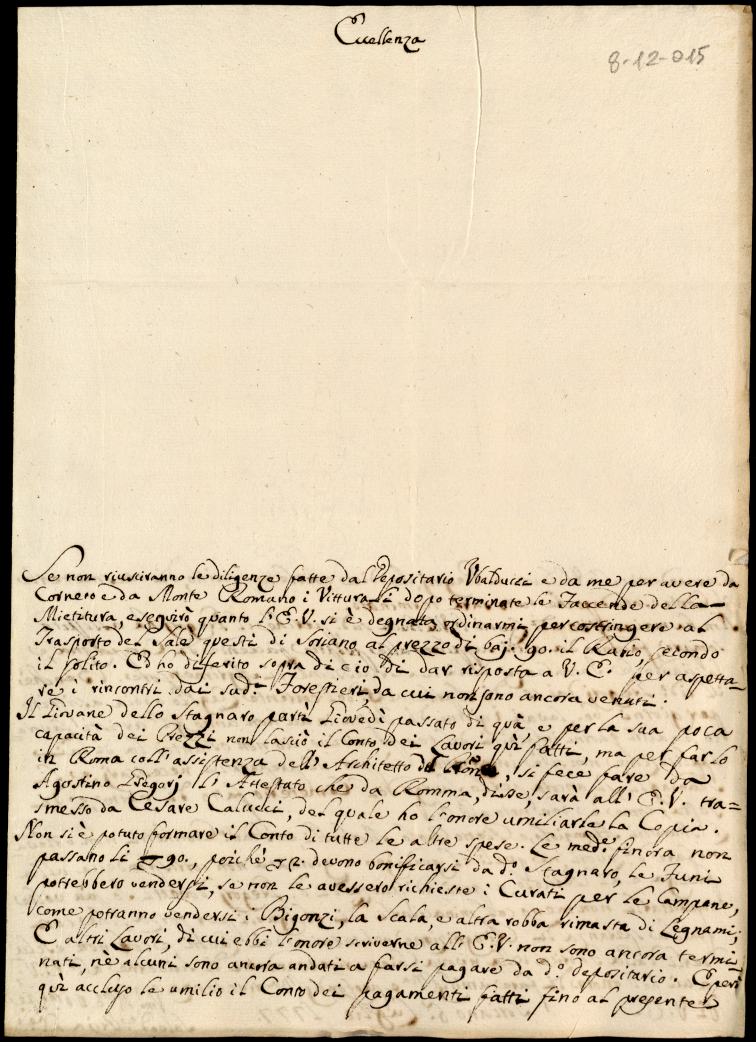 Eccellenza
8-12-015
Se non riusciranno le diligenze fatte dal Depositario Ubalducci e da me per avere da
Corneto e da Monte Romano i Vitturali dopo terminate le Faccende della
Mietitura, eseguirò quanto l'E.V. si è degnata ordinarmi, per costringere al
Trasporto del Sale questi di Soriano al prezzo di baj. 90. il Rubio, secondo
il solito. Ed ho diferito sopra di ciò di dar risposta a V. E. per aspetta-
re i rincontri dai sud.i Forestieri, da cui non sono ancora venuti.
Il Giovane dello Stagnaro partì Giovedì passato di quà, e per la sua poca
capacità dei Prezzi non lasciò il Conto dei Lavori quì fatti, ma per farlo
in Roma coll'assistenza dell'Architetto di, si fece fare da
Agostino Gregorj l'Attestato che da Romma, disse, sarà all'E.V. tra=
smesso da Cesare Calucci, del quale ho l'onore umiliarle la Copia.
Non si è potuto formare il Conto di tutte le altre spese. Le med.e finora non
passano li 90., poichè devono bonificarsi da d.o Stagnaro, le Funi
potrebbero vendersi, se non le avessero richieste i Curati per le Campane,
come potranno vendersi i Bigonzi, la Scala, e altra robba rimasta di Legnami;
E altri Lavori, di cui ebbi l'onore scriverne all'E.V. non sono ancora termi
nati, nè alcuni sono ancora andati a farsi pagare da d.o Depositario. E però
quì accluso le umilio il Conto dei pagamenti fatti fino al presente